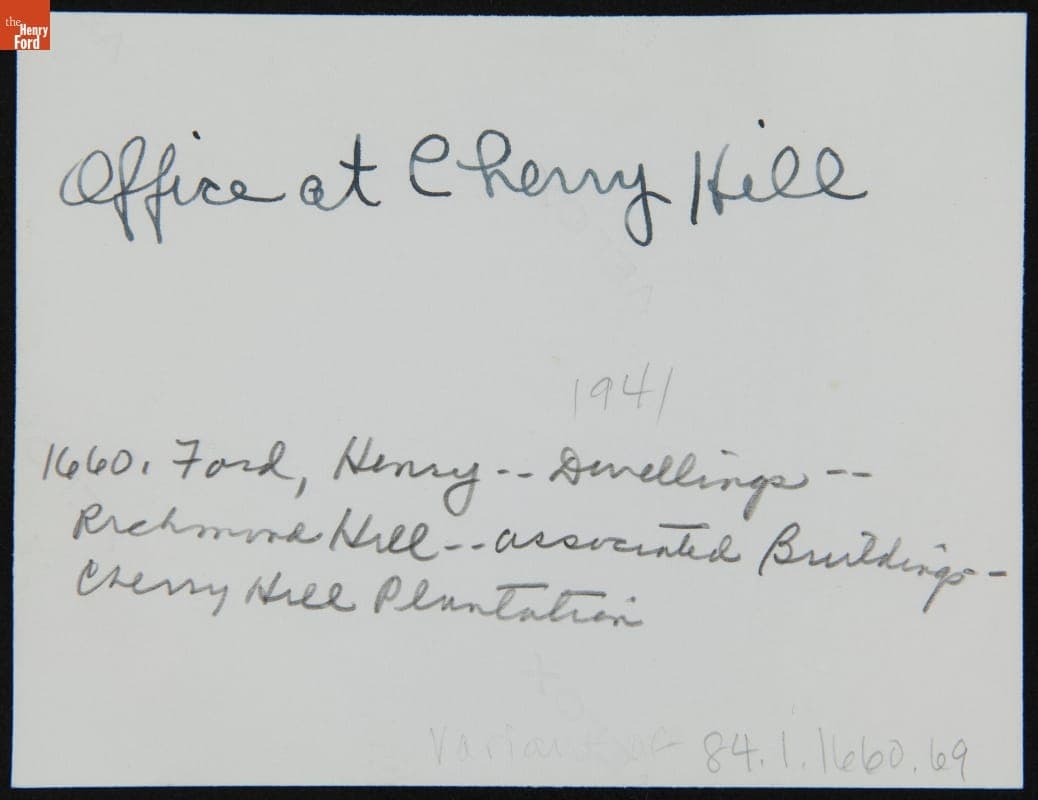 the
Henry
Ford
Office at Cherry Hill
1941
1660. Ford, Henry -- Dwellings --
Richmond Hill -- associated Buildings -
Cherry Hill Plantation
Variant of 84.1.1660.69